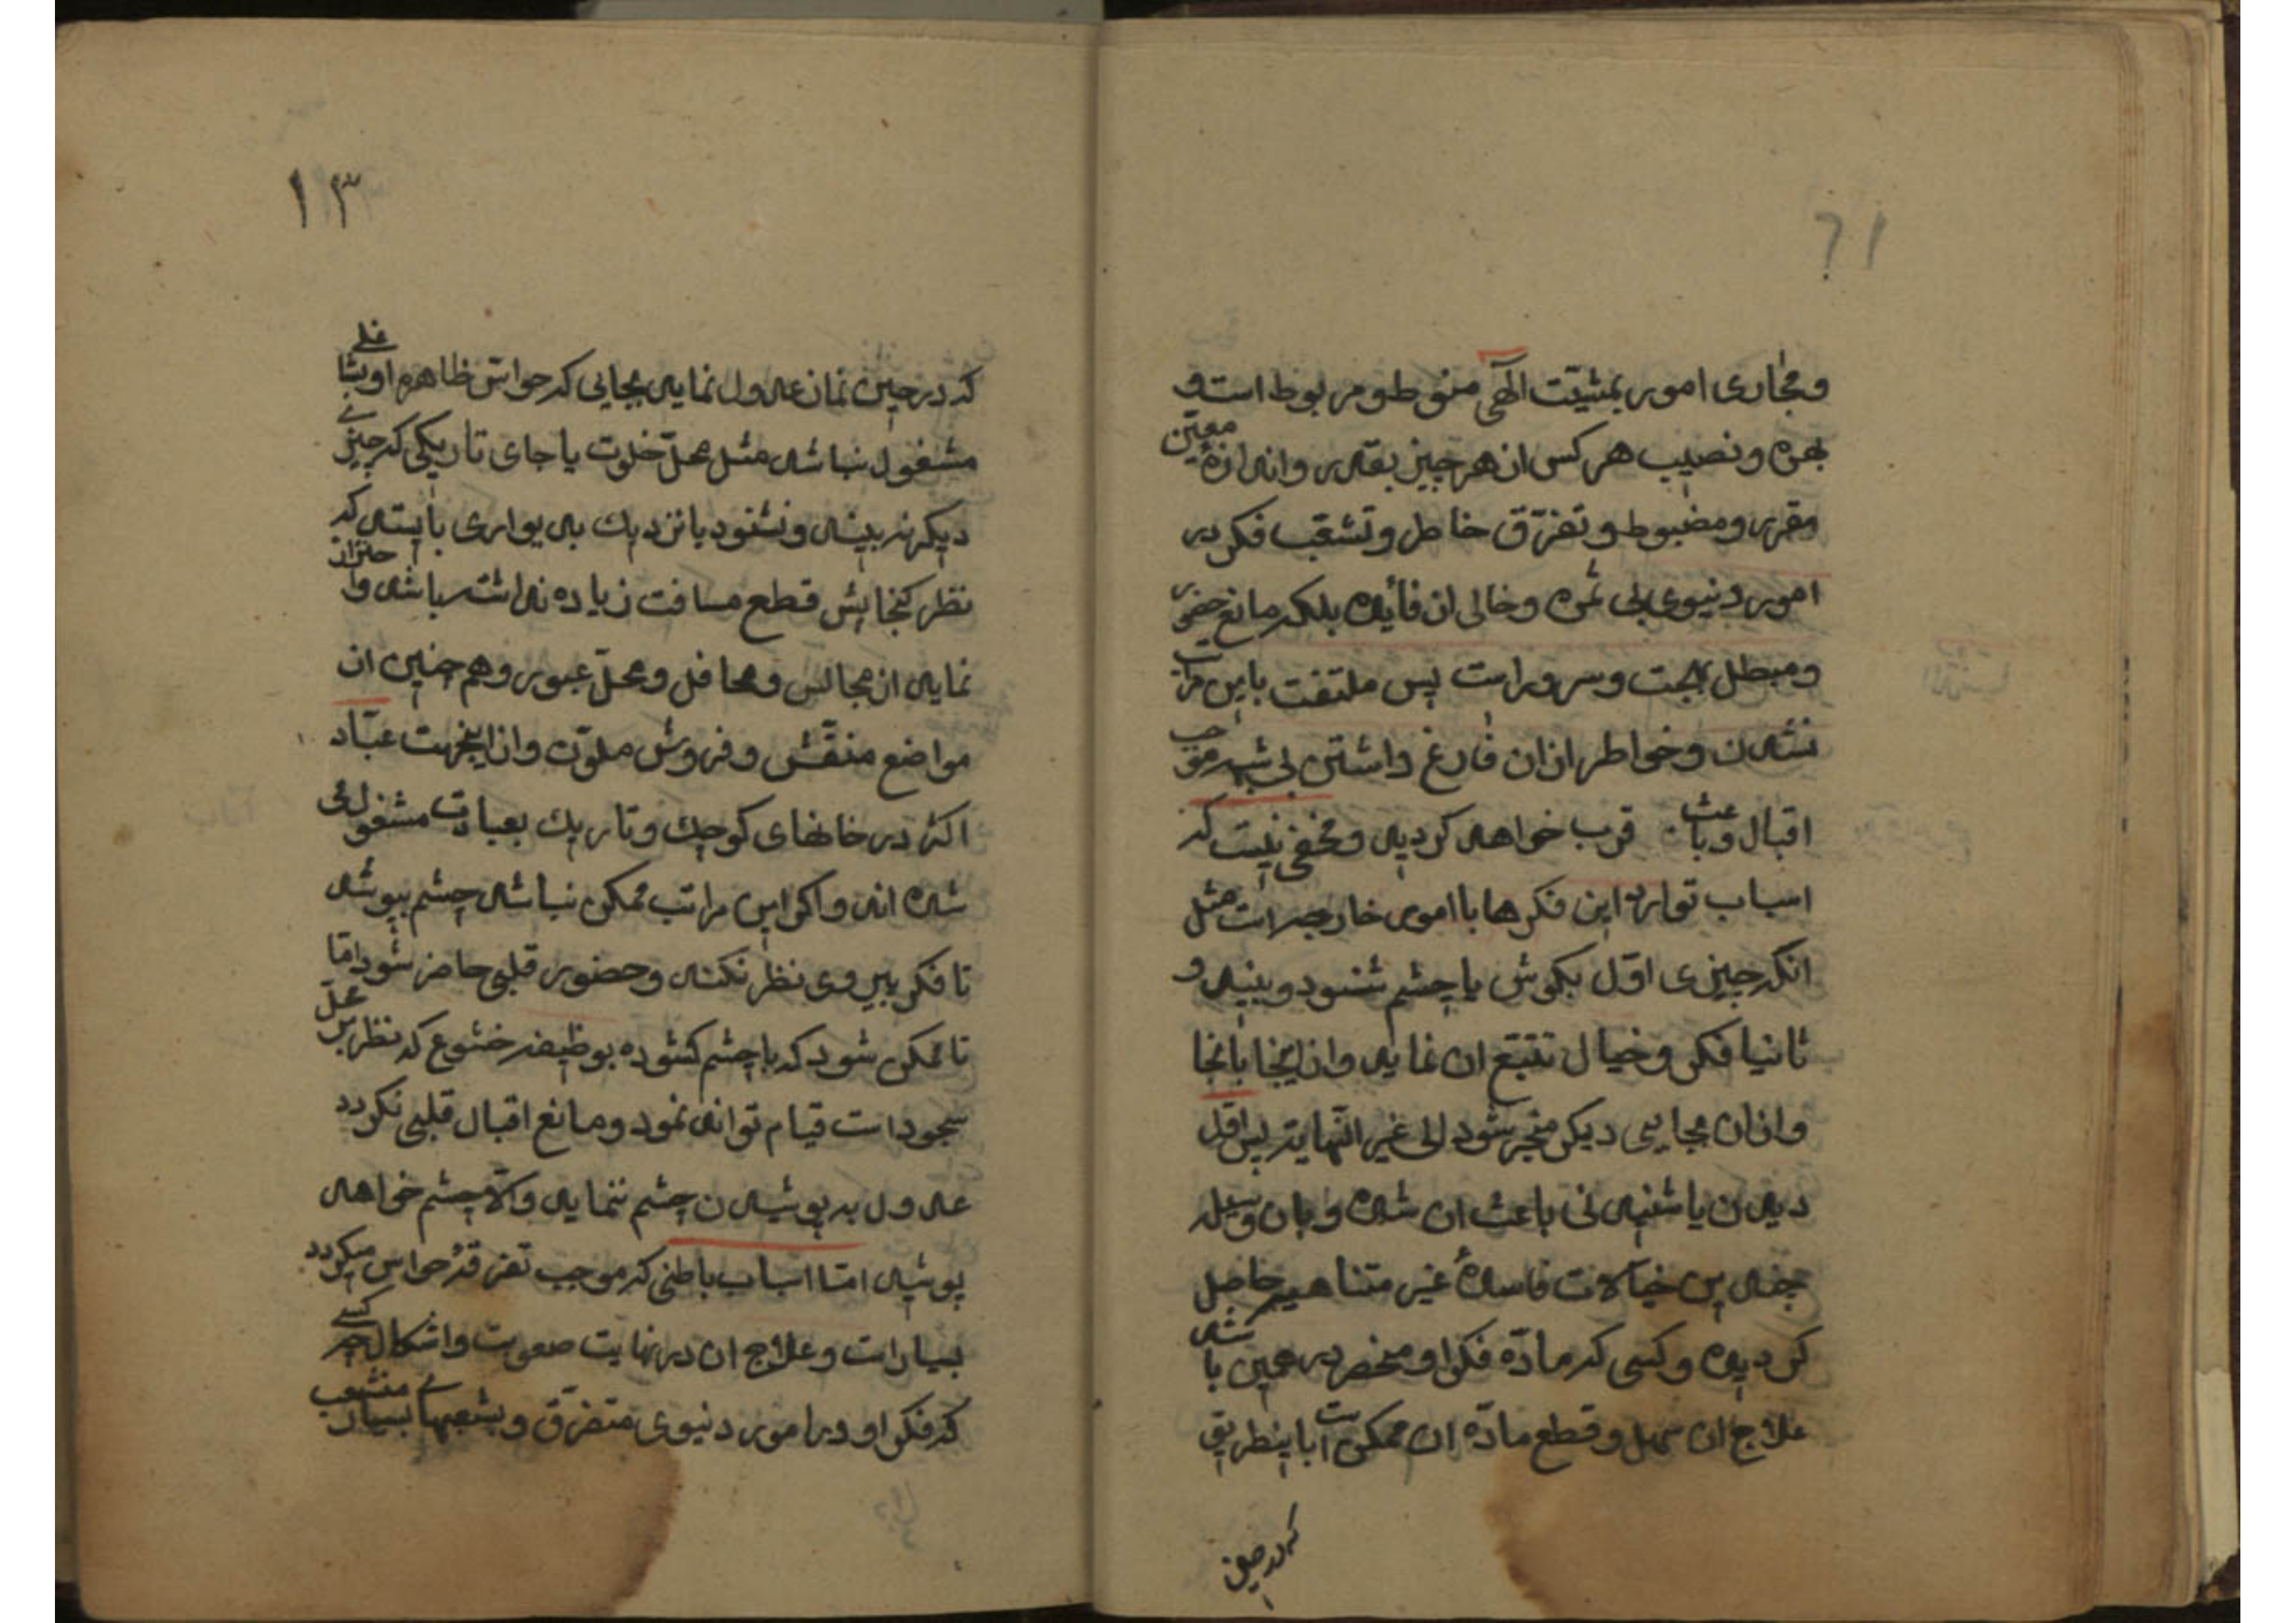 ومجاری امور بمشیّت الٓهی منوط ومربوط است و
بهره ونصیب هر کس از هر چیز بقدر واندازهٔ معیّن
مقرر ومضبوط وتفرّق خاطر وتشعّب فکر در
امور دنیوی بی ثمره وخالی از فائده بلکه مانع حضور
ومبطل بهجت وسرور است پس ملتفت باین مراتب
نشدن وخواطر از ان فارغ داشتن بی شبهه موجب
اقبال وباعث قرب خواهد کردید ومخفی نیست که
اسباب توارد این فکرها یا امور خارجه است مثل
انکه چیزی اوّل بکوش یا چشم شنود وبیند و
ثانیا فکر وخیال تتبع ان نماید واز اینجا بانجا
واز ان بجایی دیکر منجر شود الی غیر النّهایة پس اوّل
دیدن یا شنیدنی باعث ان شده وبان وسیله
چندین خیالات فاسدهٔ غیر متناهیه حاصل
کردیده وکسی که مادّه فکر او منحصر در همین باشد
علاج ان سهل وقطع مادّه ان ممکن است باینطریق
که در حین
۱۳
که در حین نماز عدول نماید بجایی که حواسّ ظاهره او بشغلی
مشغول نباشد مثل محلّ خلوت یا جای تاریکی که چیزی
دیکر نه بیند ونشنود یا نزدیک بدیواری بایستد که
نظر کنجایش قطع مسافت زیاده نداشته باشد واحتراز
نماید از مجالس ومحافل ومحلّ عبور وهم چنین از
مواضع منقّش وفروش ملوّن واز اینجهت عبّاد
اکثر در خانهای کوچک وتاریک بعبادت مشغول می
شده اند واکر این مراتب ممکن نباشد چشم بپوشد
تا فکر پیروی نظر نکند وحضور قلبی حاضر شود امّا
تا ممکن شود که با چشم کشوده بوظیفه خشوع که نظر بر محلّ
سجود است قیام تواند نمود ومانع اقبال قلبی نکردد
عدول به پوشیدن چشم ننماید والّا چشم خواهد
پوشید امّا اسباب باطنی که موجب تفرقهٔ حواس میکردد
بسیار است وعلاج ان در نهایت صعوبت واشکال چه کسی
که فکر او در امور دنیوی متفرّق وبشعبهای بسیار منشعب